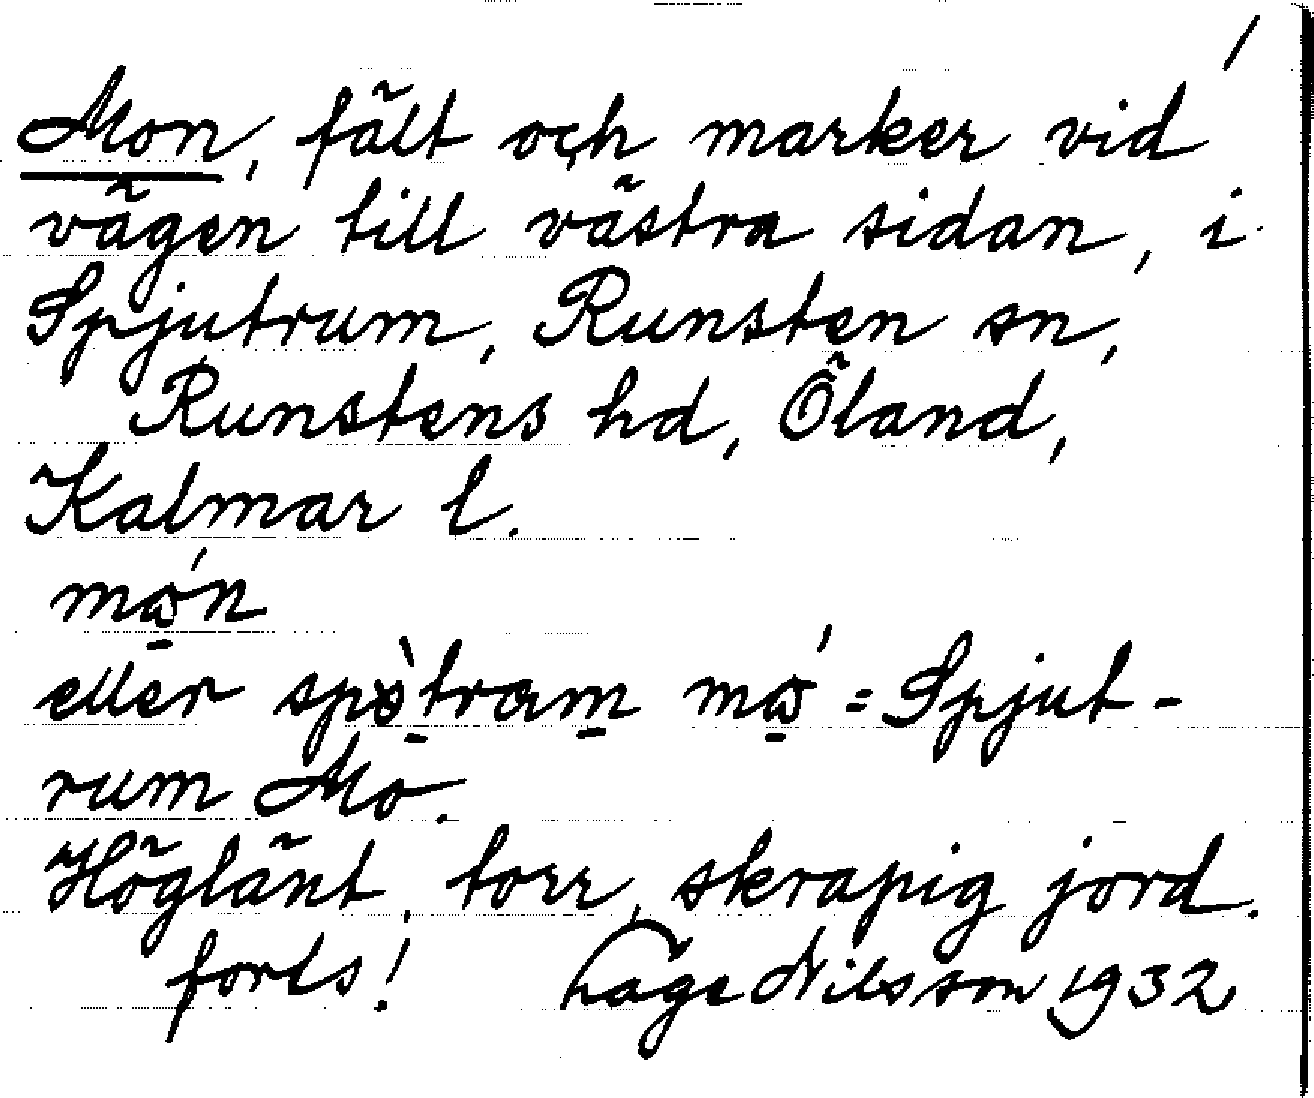 /
Mon, fält och marker vid
vägen till västra sidan, i
Spjutrum, Runsten sn,
Runstens hd, Öland,
Kalmar l.
eller = Spjut-
rum Mo.
Höglänt, torr, skrapig jord.
forts! Nilsson 1932